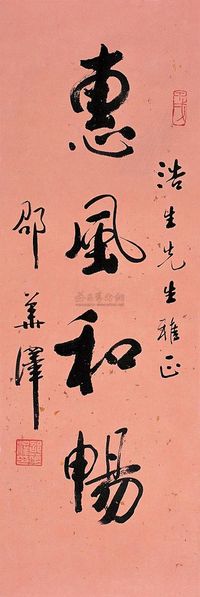 浩生先生雅正
惠風和暢
邵華澤